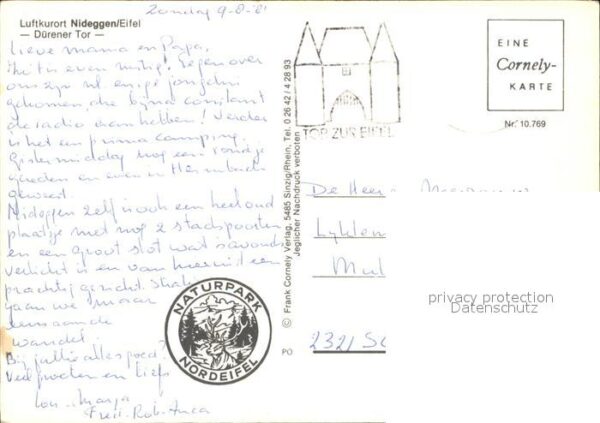 Zondag 9-8-'81
Luftkurort Nideggen/Eifel
— Dürener Tor —
Lieve mama en Papa,
Het is even rustig! Tegenover
ons zijn nl. enige jongelui
gekomen, die bijna constant
de radio aan hebben! Verder
is het een prima camping.
Gistermiddag nog een rondje
gereden en even in Heimbach
geweest.
Nideggen zelf is ook een heel oud
plaatsje met nog 2 stadspoorten
en een groot slot wat 's avonds
verlicht is en van hieruit een
prachtig gezicht. Straks
gaan we maar
eens aan de
wandel.
Bij jullie alles goed?
Veel groeten en liefs
Marja
Fred. Rob. Anca
NATURPARK
NORDEIFEL
© Frank Cornely Verlag, 5485 Sinzig/Rhein, Tel. 0 26 42 / 4 28 93
Jeglicher Nachdruck verboten
PO
TOR ZUR EIFEL
EINE
Cornely-
KARTE
Nr. 10.769
De Heer
2321
privacy protection
Datenschutz